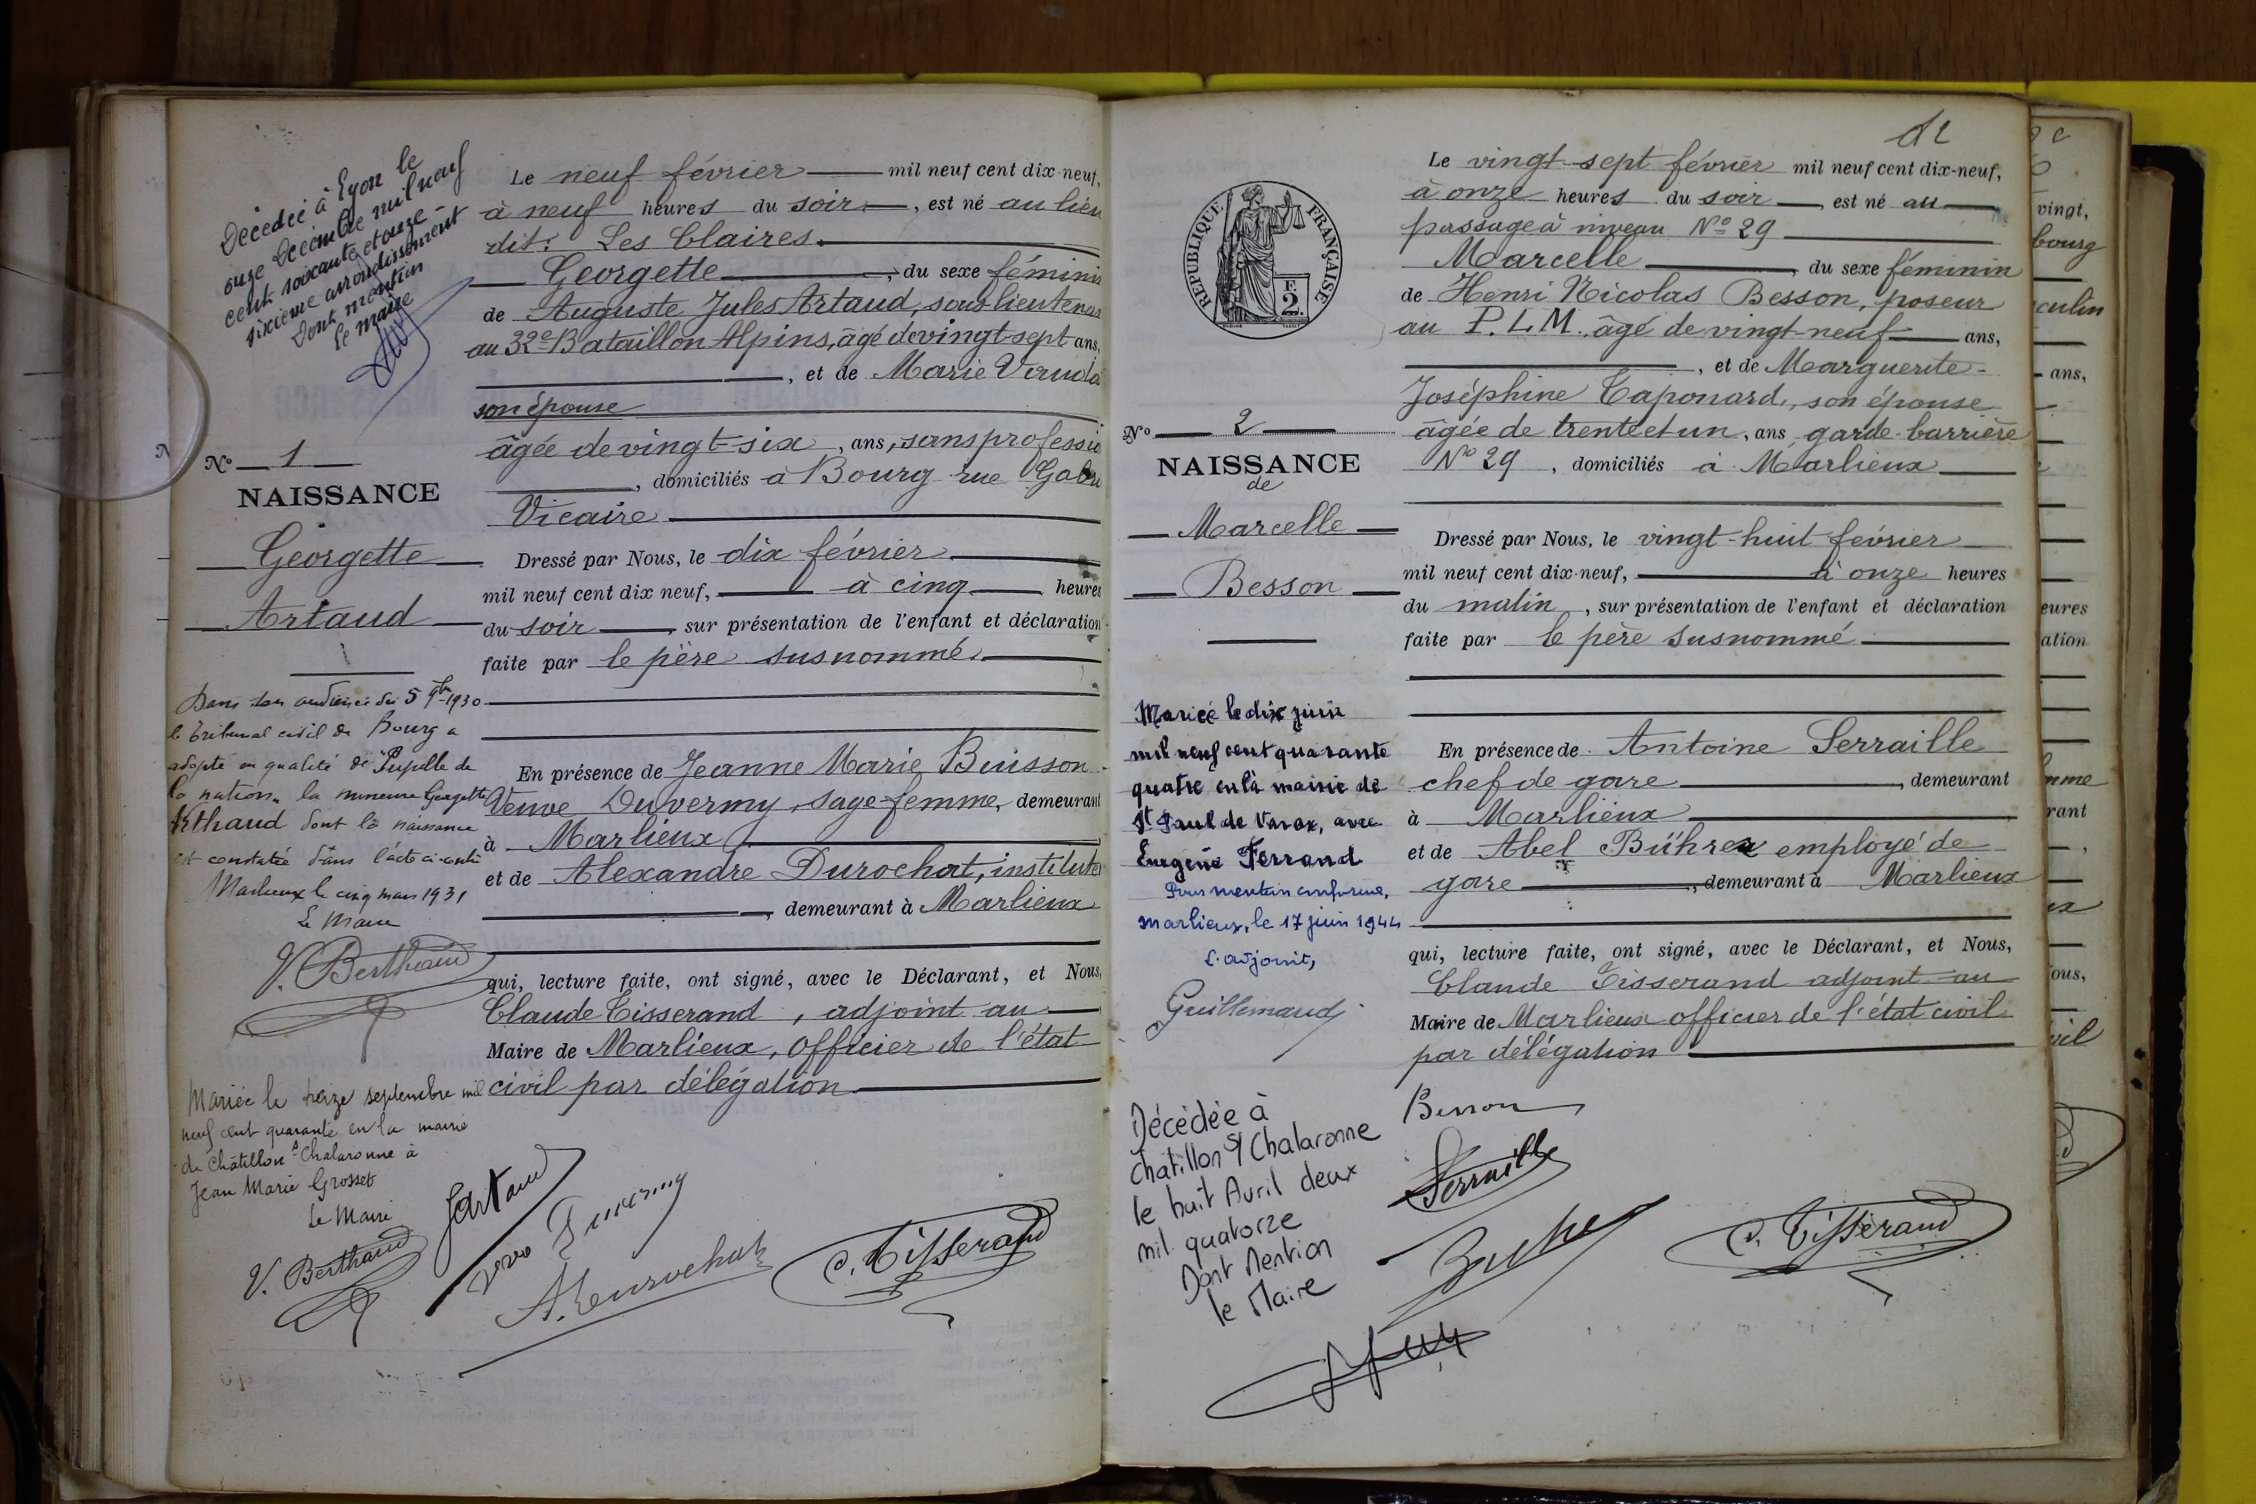 Décédée à Lyon le
onze Décembre mil neuf
cent soixante et onze -
sixième arrondissement
Dont mention
le maire
Le neuf février mil neuf cent dix-neuf,
à neuf heures du soir, est né au lieu
dit: Les Claires.
Georgette, du sexe féminin
de Auguste Jules Artaud, sous-lieutenan
au 32e Bataillon Alpins, âgé de vingt-sept ans,
, et de Marie
son épouse
âgée de vingt-six, ans, sans professio
, domiciliés à Bourg rue Gabri
Vicaire
Dressé par Nous, le dix février
mil neuf cent dix neuf, à cinq heures
du soir, sur présentation de l'enfant et déclaration
faite par le père susnommé.
En présence de Jeanne Marie Buisson
Veuve Duvermy, sage-femme, demeurant
à Marlieux
et de Alexandre Durochat, institute
, demeurant à Marlieux
qui, lecture faite, ont signé, avec le Déclarant, et Nous,
Claude Tisserand, adjoint au
Maire de Marlieux, officier de l'état
civil par délégation
No 1
NAISSANCE
Georgette
Artaud
Dans son audience du 5 9bre 1930
le tribunal civil de Bourg a
adopté en qualité de Pupille de
la nation, la mineure Georgette
Arthaud dont la naissance
est constatée dans l'acte ci-contre
Marlieux le cinq mars 1931
Le Maire
V. Berthaud
Mariée le treize septembre mil
neuf cent quarante en la mairie
de Châtillon s Chalaronne à
Jean Marie Grosset
Le Maire
V. Berthaud
J Artaud
Vve Duvermy
A. Durochat
C. Tisserand
No 2
NAISSANCE
de
Marcelle
Besson
Mariée le dix juin
mil neuf cent quarante
quatre en la mairie de
St Paul de Varax, avec
Eugène Ferrand
Pour mention conforme,
Marlieux, le 17 juin 1944
L'adjoint,
Guillemaud
Décédée à
Chatillon S/ Chalaronne
le huit Avril deux
mil quatorze
Dont Mention
le Maire
REPUBLIQUE FRANÇAISE
F.
2.
Le vingt-sept février mil neuf cent dix-neuf,
à onze heures du soir, est né au
passage à niveau No 29
Marcelle, du sexe féminin
de Henri Nicolas Besson, poseur
au P. L M. âgé de vingt-neuf ans,
, et de Marguerite
Joséphine Taponard, son épouse
âgée de trente et un, ans garde-barrière
No 29, domiciliés à Marlieux
Dressé par Nous, le vingt-huit février
mil neuf cent dix-neuf, à onze heures
du matin, sur présentation de l'enfant et déclaration
faite par le père susnommé
En présence de Antoine Serraille
chef de gare, demeurant
à Marlieux
et de Abel Bührer employé de
gare, demeurant à Marlieux
qui, lecture faite, ont signé, avec le Déclarant, et Nous,
Claude Tisserand adjoint au
Maire de Marlieux officier de l'état civil
par délégation
Besson
Serraille
C. Tisserand
vingt,
bourg
culin
ans,
eures
ation
mme
rant
ous,